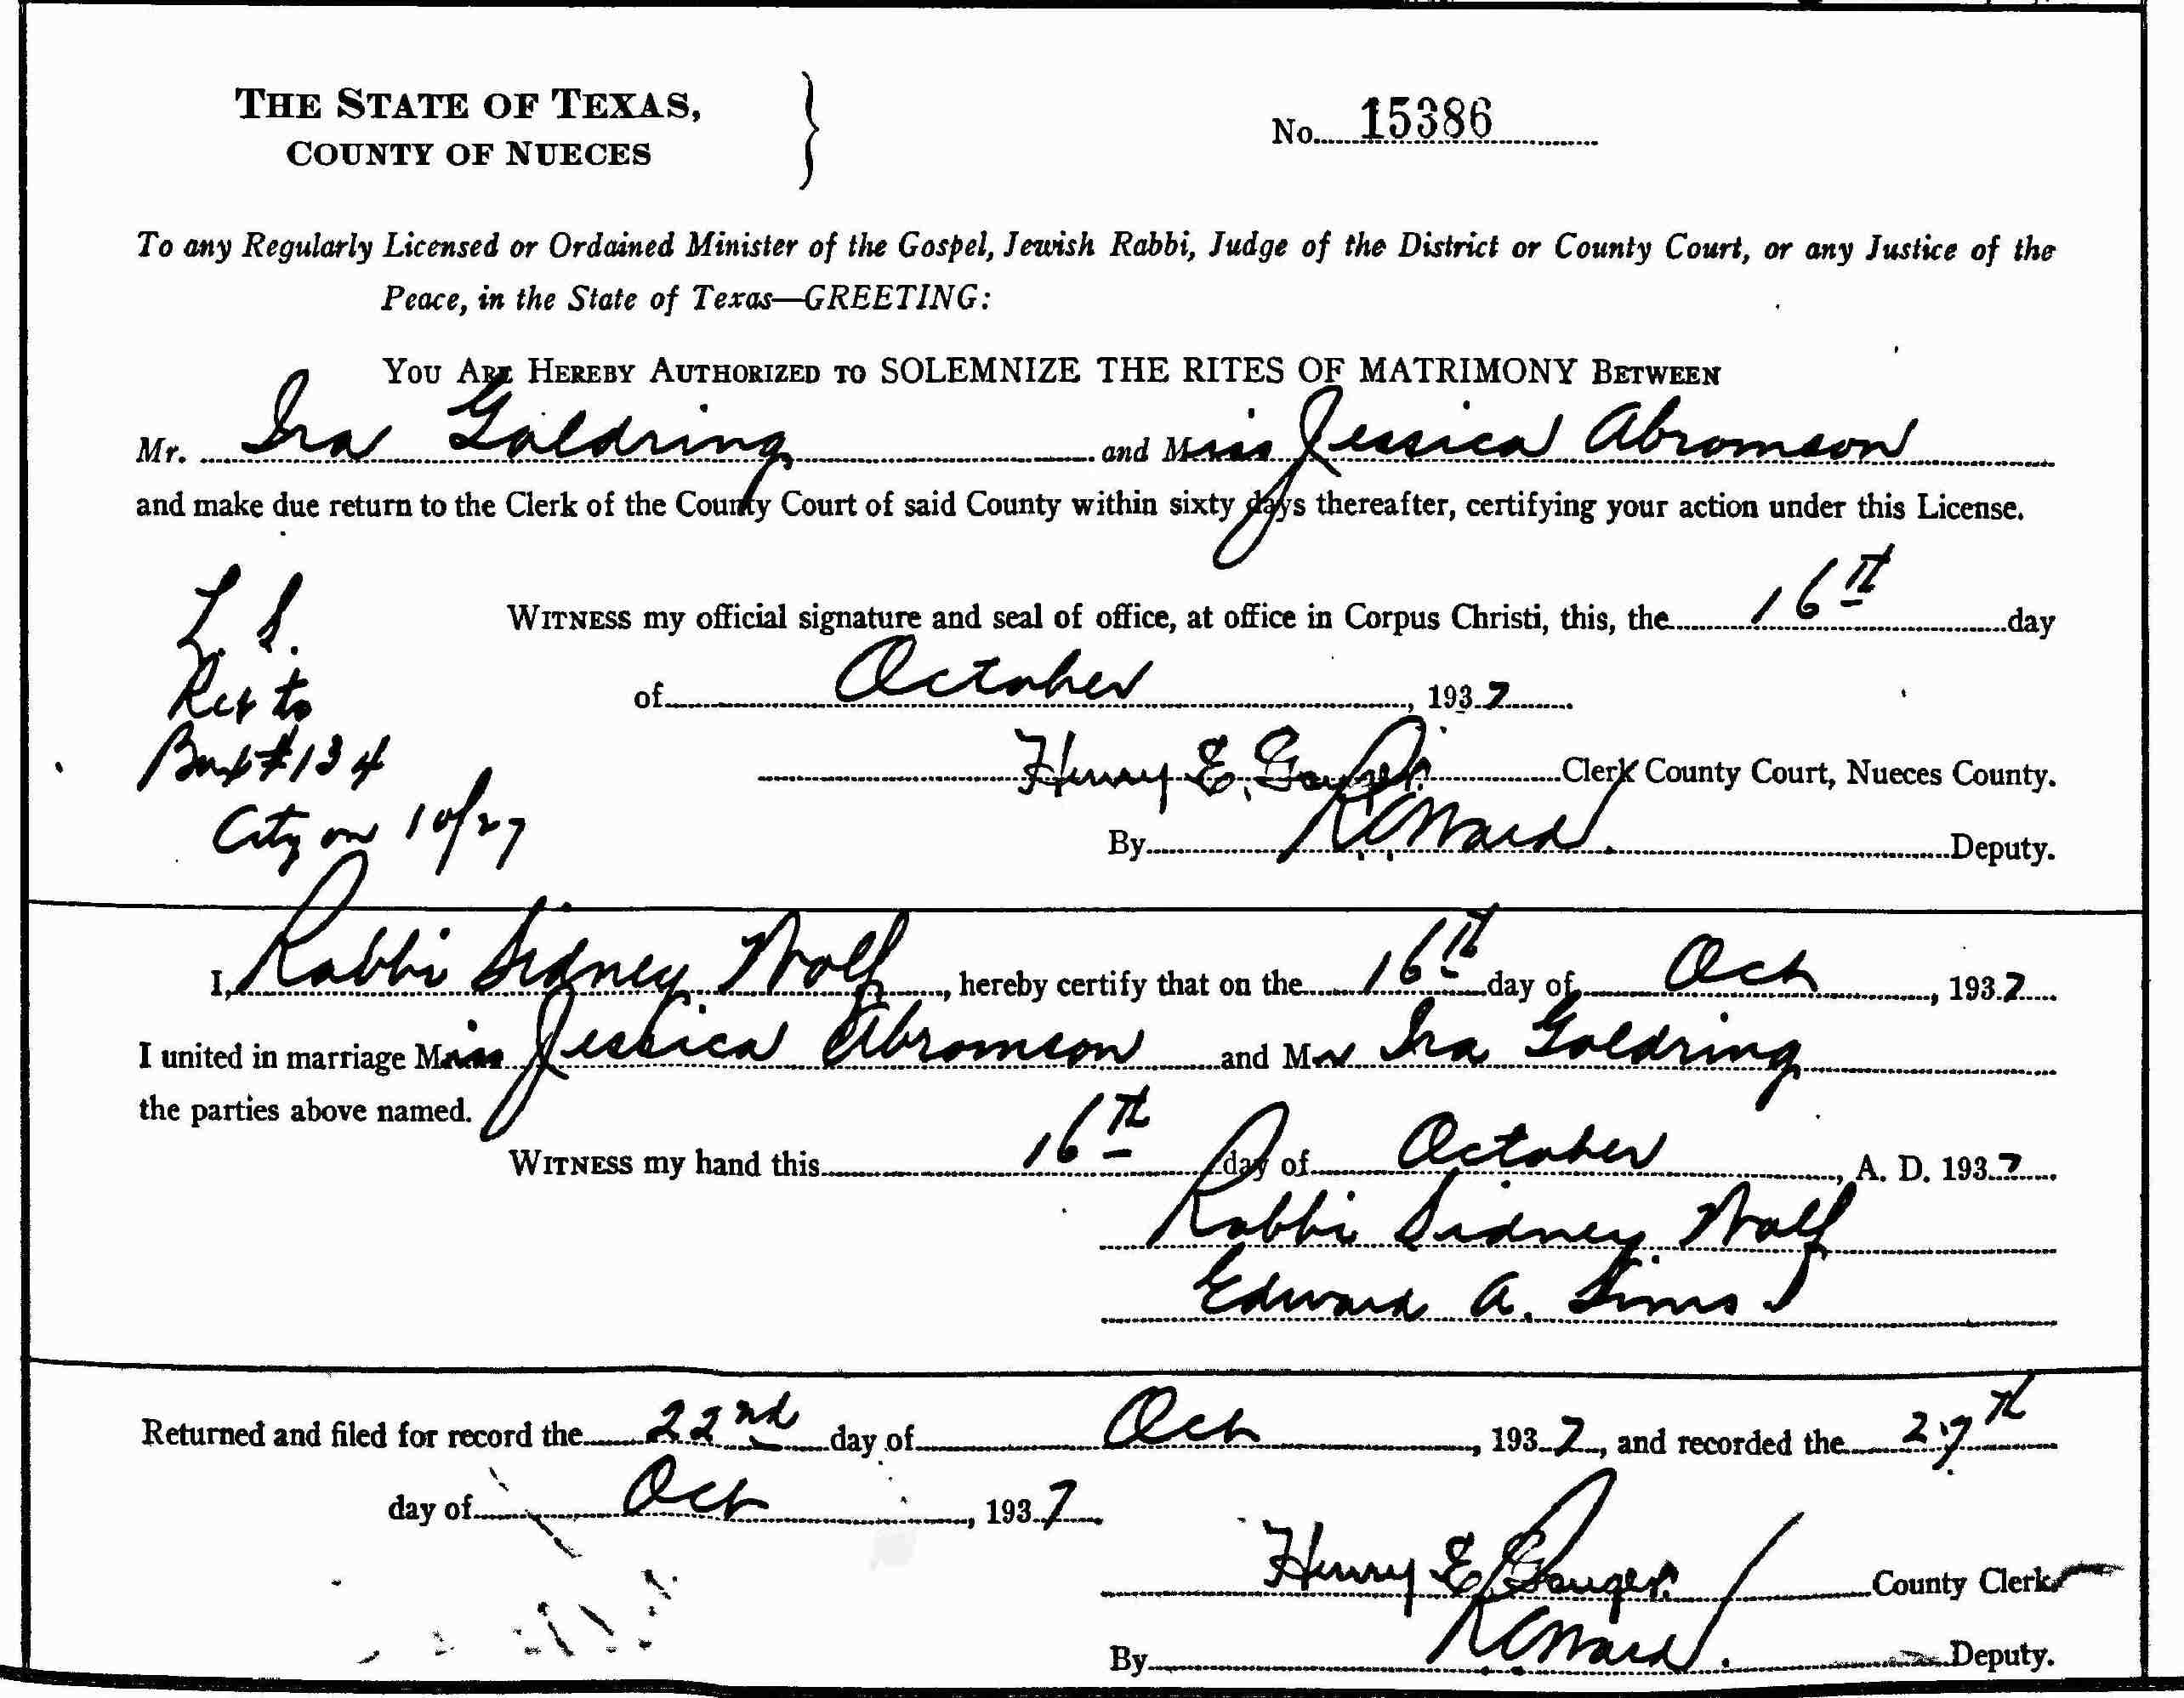 THE STATE OF TEXAS,
COUNTY OF NUECES
No. 15386
To any Regularly Licensed or Ordained Minister of the Gospel, Jewish Rabbi, Judge of the District or County Court, or any Justice of the
Peace, in the State of Texas—GREETING:
YOU ARE HEREBY AUTHORIZED TO SOLEMNIZE THE RITES OF MATRIMONY BETWEEN
Mr. Ira Goldring and Miss Jessica Abromson
and make due return to the Clerk of the County Court of said County within sixty days thereafter, certifying your action under this License.
L. S.
WITNESS my official signature and seal of office, at office in Corpus Christi, this, the 16th day
Ret to
of October, 1937
Box #134
Henry E. Gouger. Clerk County Court, Nueces County.
City on 10/27
By R.C. Ward. Deputy.
I, Rabbi Sidney Wolf, hereby certify that on the 16th day of Oct, 1937
I united in marriage Miss Jessica Abromson and Mr Ira Goldring
the parties above named.
WITNESS my hand this 16th day of October, A. D. 1937
Rabbi Sidney Wolf
Edward A. Sims
Returned and filed for record the 22nd day of Oct, 1937, and recorded the 27th
day of Oct, 1937
Henry E. Gouger. County Clerk
By R.C. Ward. Deputy.